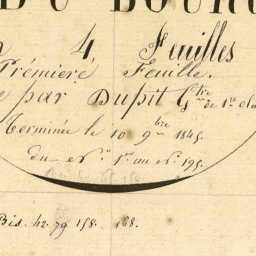 DU BOURG
4 Feuilles
Prémière Feuille.
par Dupit Gtre de 1re cla
Terminée le 10 9bre 1845
du No 1er au No 195.
Bis. 42. 79 158. 168.